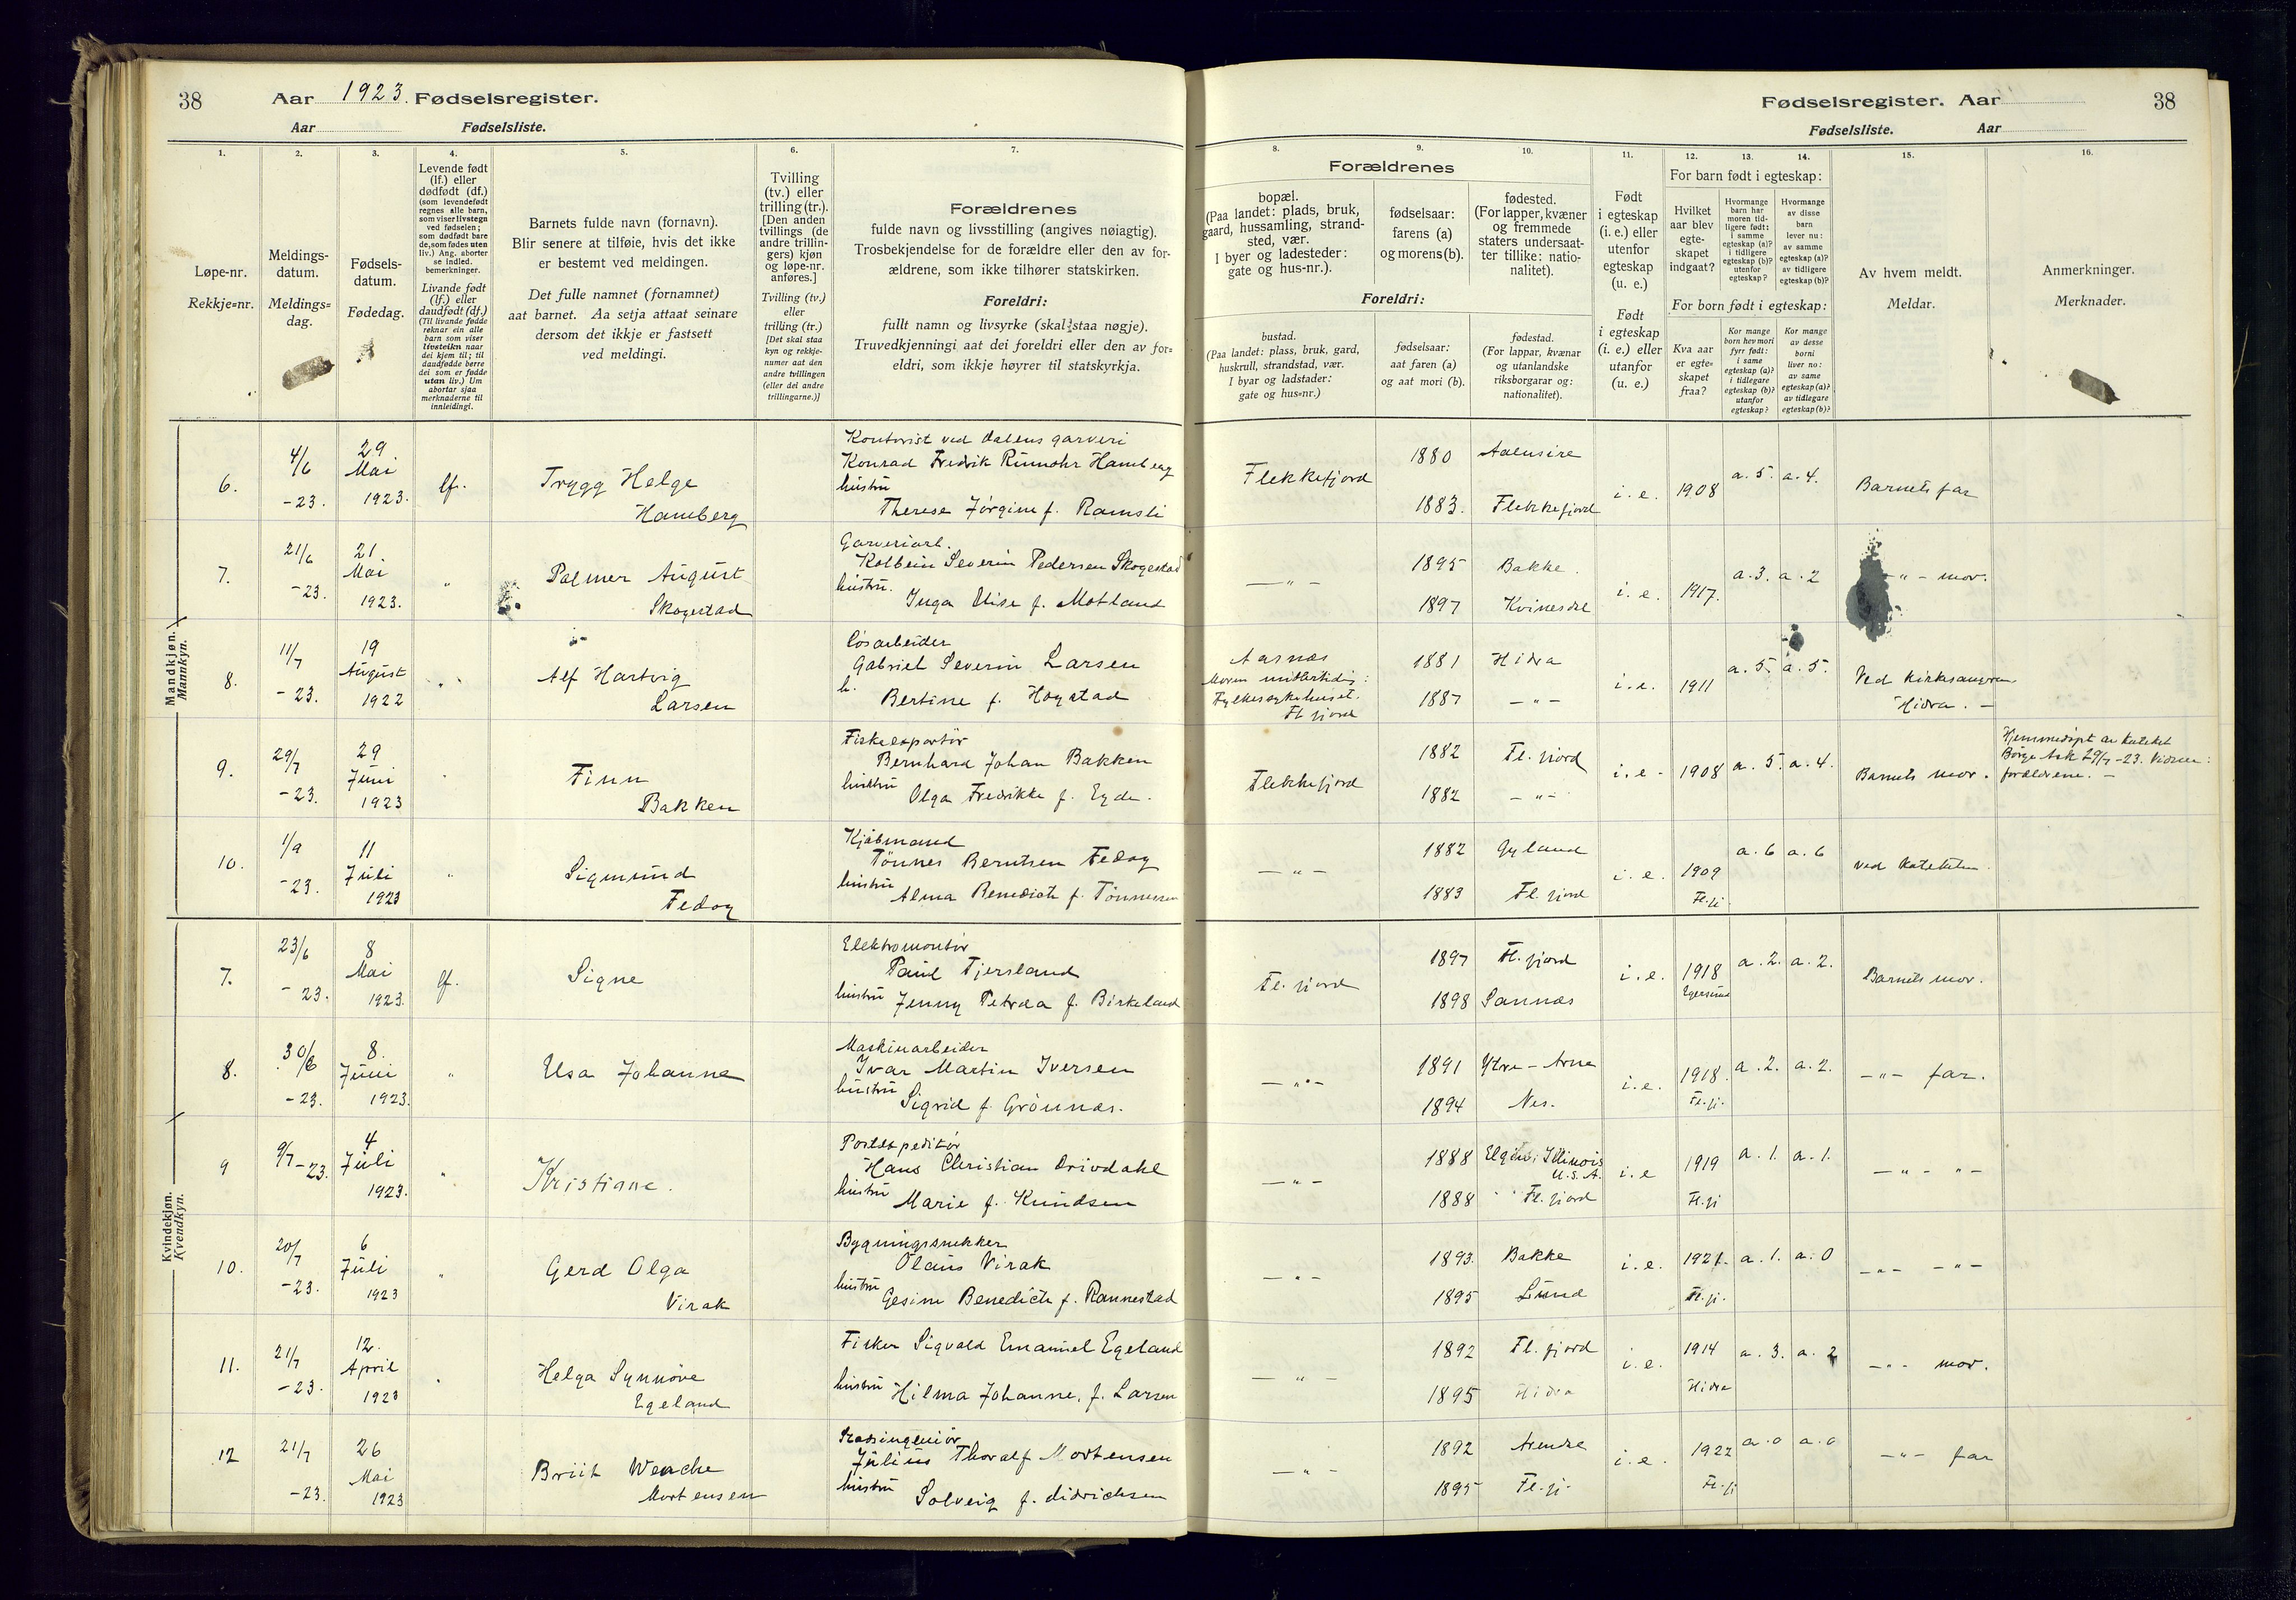 38 Aar 1923. Fødselsregister.
Aar Fødselsliste.
Fødselsregister. Aar 38
Fødselsliste. Aar
1.
Løpe-nr.
Rekkje=nr.
2.
Meldings-
datum.
Meldings=
dag.
3.
Fødsels-
datum.
Fødedag.
4.
Levende født
(lf.) eller
dødfødt (df.)
(som levendefødt
regnes alle barn,
som viser livstegn
ved fødselen;
som dødfødt bare
de, som fødes uten
liv.) Ang. aborter
se indled.
bemerkninger.
Livande født
(lf.) eller
daudfødt (df.)
(Til livande fødde
reknar ein alle
barn som viser
livsteikn naar
dei kjem til; til
daudfødde berre
dei som er fødde
utan liv.) Um
abortar sjaa
merknaderne til
innleidingi.
5.
Barnets fulde navn (fornavn).
Blir senere at tilføie, hvis det ikke
er bestemt ved meldingen.
Det fulle namnet (fornamnet)
aat barnet. Aa setja attaat seinare
dersom det ikkje er fastsett
ved meldingi.
6.
Tvilling
(tv.) eller
trilling (tr.).
[Den anden
tvillings (de
andre trillin-
gers) kjøn
og løpe-nr.
anføres.]
Tvilling (tv.)
eller
trilling (tr.)
[Det skal staa
kyn og rekkje-
numer aat den
andre tvillingen
(eller dei andre
trillingarne.)]
7.
Forældrenes
fulde navn og livsstilling (angives nøiagtig).
Trosbekjendelse for de forældre eller den av for-
ældrene, som ikke tilhører statskirken.
Foreldri:
fullt namn og livsyrke (skal staa nøgje).
Truvedkjenningi aat dei foreldri eller den av for=
eldri, som ikkje høyrer til statskyrkja.
8.
9.
10.
Forældrenes
bopæl.
(Paa landet: plads, bruk,
gaard, hussamling, strand-
sted, vær.
I byer og ladesteder:
gate og hus-nr.).
fødselsaar:
farens (a)
og morens (b).
fødested.
(For lapper, kvæner
og fremmede
staters undersaat-
ter tillike: natio-
nalitet).
Foreldri:
bustad.
(Paa landet: plass, bruk, gard,
huskrull, strandstad, vær.
I byar og ladstader:
gate og hus=nr.)
fødselsaar:
aat faren (a)
og aat mori (b).
fødestad.
(For lappar, kvænar
og utanlandske
riksborgarar og:
nationalitet).
11.
Født
i egteskap
(i. e.) eller
utenfor
egteskap
(u. e.)
Født
i egteskap
(i. e.) eller
utanfor
(u. e.)
12.
13.
14.
For barn født i egteskap:
Hvilket
aar blev
egte-
skapet
indgaat?
Hvormange
barn har
moren tid-
ligere født:
i samme
egteskap (a)?
i tidligere
egteskap (b)?
utenfor
egteskap?
Hvormange
av disse
barn
lever nu:
av samme
egteskap (a)?
av tidligere
egteskap (b)?
For born født i egteskap:
Kva aar
er egte-
skapet
fraa?
Kor mange
born hev mori
fyrr født:
i same
egteskap (a)?
i tidlegare
egteskap (b)?
utanfor
egteskap?
Kor mange
av desse
borni
liver no:
av same
egteskap (a)?
av tidlegare
egteskap (b)?
15.
Av hvem meldt.
Meldar.
16.
Anmerkninger.
Merknader.
Mandkjøn.
Mannkyn.
6.
4/6
-23.
29
Mai
1923.
lf.
Trygg Helge
Hamberg
Kontorist ved Dalens garveri
Konrad Fredrik Rinnohr Hamberg
hustru
Therese Jørgine f. Ramsli
Flekkefjord
1880 Aalesund
1883. Flekkefjord
i. e. 1908 a. 5. a. 4.
Barnets far
7.
21/6
-23.
21.
Mai
1923.
"
Palmer August
Skogestad
Garveriarb.
Kolbein Severin Pedersen Skogestad
hustru.
Inga Elise f. Motland
— " —
1895 Bakke.
1897 Kvinesdal
i. e. 1917. a. 3. a. 2
— " — mor.
8.
11/7
-23.
19
August
1922
"
Alf Hartvig
Larsen
Løsarbeider
Gabriel Severin Larsen
h.
Bertine f. Hogstad
Aasnæs
Moren midlertidig:
Fylkessykehuset.
Fl. fjord
1881 Hidra
1887 — " —
i. e. 1911 a. 5. a. 5.
Ved kirkesangeren
Hidra. —
9.
29/7
-23.
29
Juni
1923
"
Finn
Bakken
Fiskeexportør
Bernhard Johan Bakken
hustru
Olga Fredrikke f. Eyde.
Flekkefjord
1882 Fl. fjord
1882 — " —
i. e. 1908 a. 5. a. 4.
Barnets mor.
Hjemmedøpt av kateket
Børge Ask 29/7-23. Vidner:
forældrene. —
10.
1/9
-23.
11
Juli
1923
"
Sigmund
Fedog
Kjøbmand
Tønnes Berntsen Fedog
hustru
Alma Benedicte f. Tønnessen
— " —
1882 Gyland
1883 Fl. fjord
i. e. 1909
Fl. fj
a. 6 a. 6
ved kateketen
Kvindekjøn.
Kvendkyn.
7.
23/6
- 23.
8
Mai
1923.
lf.
Signe
Elektromontør
Paul Tjersland
hustru Jenny Petrea f. Birkeland
Fl. fjord
1897 Fl. fjord
1898 Sannæs
i. e. 1918
Egersund
a. 2. a. 2.
Barnets mor.
8.
30/6
-23.
8.
Juni
1923.
"
Elsa Johanne
Maskinarbeider
Ivar Martin Iversen
hustru
Sigrid f. Grønnæs.
— " —
1891 Ytre-Arna
1894 Nes.
i. e. 1918.
Fl. fj.
a. 2. a. 2.
— " — far.
9
9/7-23.
4
Juli
1923.
"
Kristiane.
Postexpeditør
Hans Christian Drivdahl
hustru
Marie f. Knudsen
— " —
1888 Elgin, Illinois
U.S.A.
1888 Fl. fjord
i. e 1919
Fl. fj
a. 1. a. 1.
— " — " —
10.
20/7
-23.
6
Juli
1923
"
Gerd Olga
Virak
Bygningssnekker
Olaus Virak
hustru
Gesine Benedicte f. Rannestad
— " —
1893. Bakke
1895 Lund
i. e. 1921.
Fl. fj.
a. 1. a. 0
— " — — " —
11.
21/7
-23.
12.
April
1923
"
Helga Synnøve
Egeland
Fisker Sigvald Emanuel Egeland
hustru Hilma Johanne, f. Larsen
— " —
1892 Fl. fjord
1895 Hidra
i. e. 1914
Hidra
a. 3. a. 2
— " — mor.
12
21/7
-23.
26
Mai
1923
Briit Wenche
Mortensen
Julius Thoralf Mortensen
hustru
Solveig f. Didrichsen
— " —
1892 Arendal
1895 Fl. fj.
i. e. 1922
Fl. fj
a. 0 a. 0
— " — far